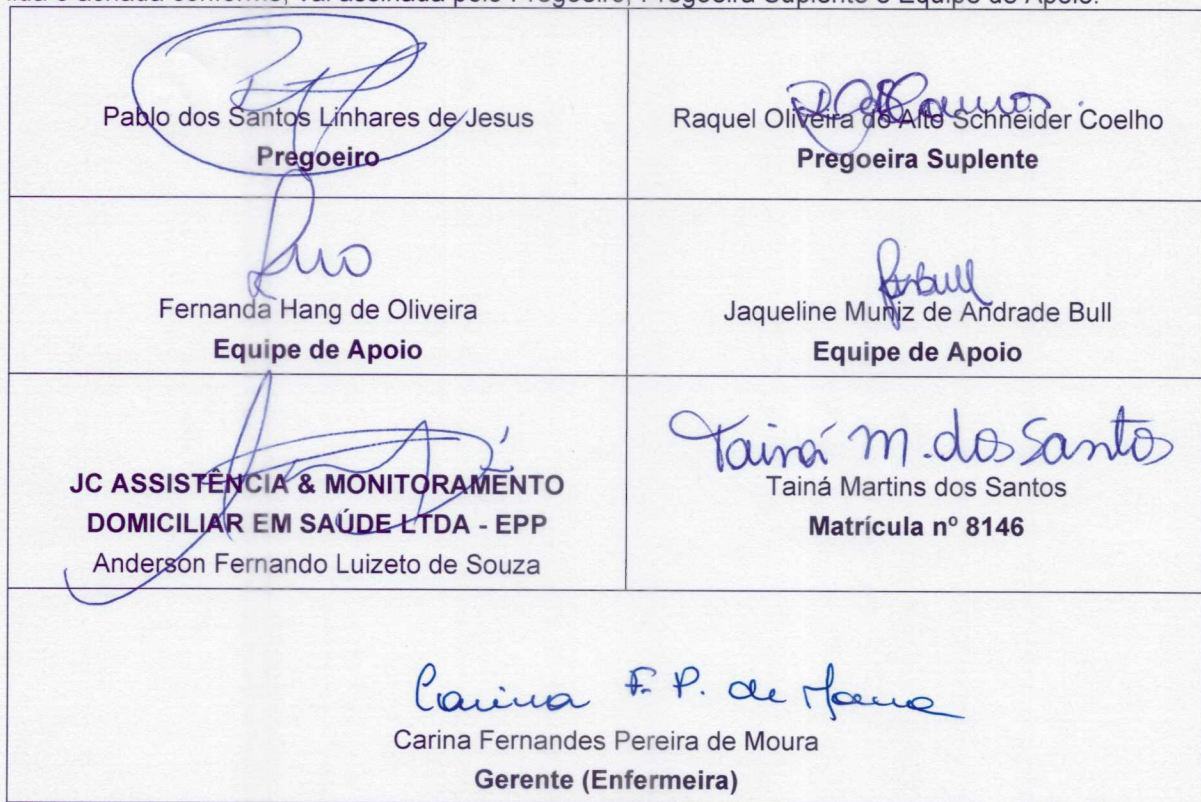 lida e achada conforme, vai assinada pelo Pregoeiro, Pregoeira Suplente e Equipe de Apoio.
Pablo dos Santos Linhares de Jesus
Pregoeiro
Raquel Oliveira do Alto Schneider Coelho
Pregoeira Suplente
Fernanda Hang de Oliveira
Equipe de Apoio
Jaqueline Muniz de Andrade Bull
Equipe de Apoio
JC ASSISTÊNCIA & MONITORAMENTO
DOMICILIAR EM SAÚDE LTDA - EPP
Anderson Fernando Luizeto de Souza
Tainá M. dos Santos
Tainá Martins dos Santos
Matrícula nº 8146
Carina F. P. de Moura
Carina Fernandes Pereira de Moura
Gerente (Enfermeira)